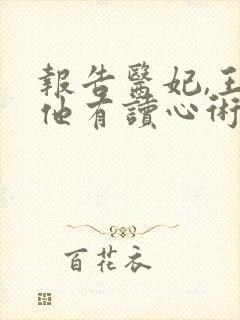 報告醫妃,王
他有讀心術
百花衣